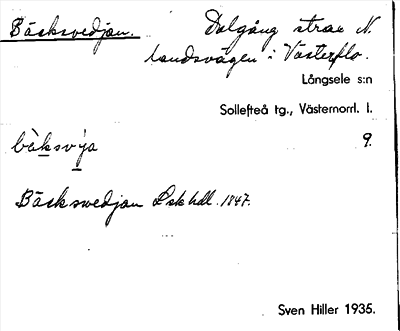 Bäcksvedjan. Dalgång strax N.
landsvägen i Västerflo.
Långsele s:n
Sollefteå tg., Västernorrl. l.
bäksvýa 9.
Bäckswedjan Lsk hdl. 1847.
Sven Hiller 1935.